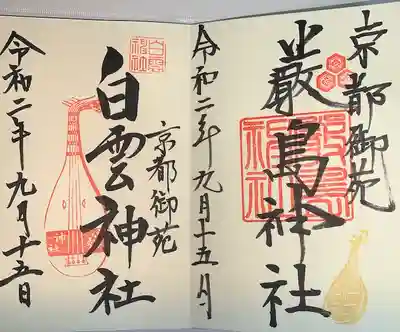 京都御苑
嚴島神社
令和二年九月十五日
京都御苑
白雲神社
令和二年九月十五日